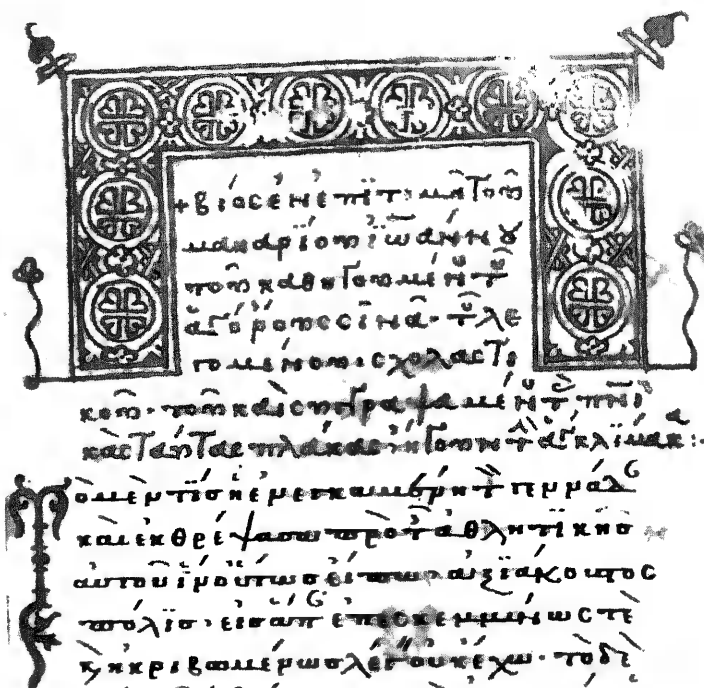 +βίος ἐν ἐπιτομῆ τοῦ
μακαρίου ἰωάννου
τοῦ καθηγουμένου τοῦ
ἁγίου ὄρους σινᾶ· τοῦ λε
γομένου σχολαστι
κοῦ· τοῦ καὶ συγγραψαμένου
κὰς ταύτας πλάκας ἤγουν τὴν ἁγίαν κλίμακα:-
Τὸ μὲν τίς
καὶ ἐκθρέψασα πρὸ τῆς ἀθλητικῆς
αὐτοῦ ἀξιάκουστος
πόλις· ἐπεσκεμμένως τὲ
ἠκριβωμένως λέγειν οὐκ ἔχω· τὸ δὲ